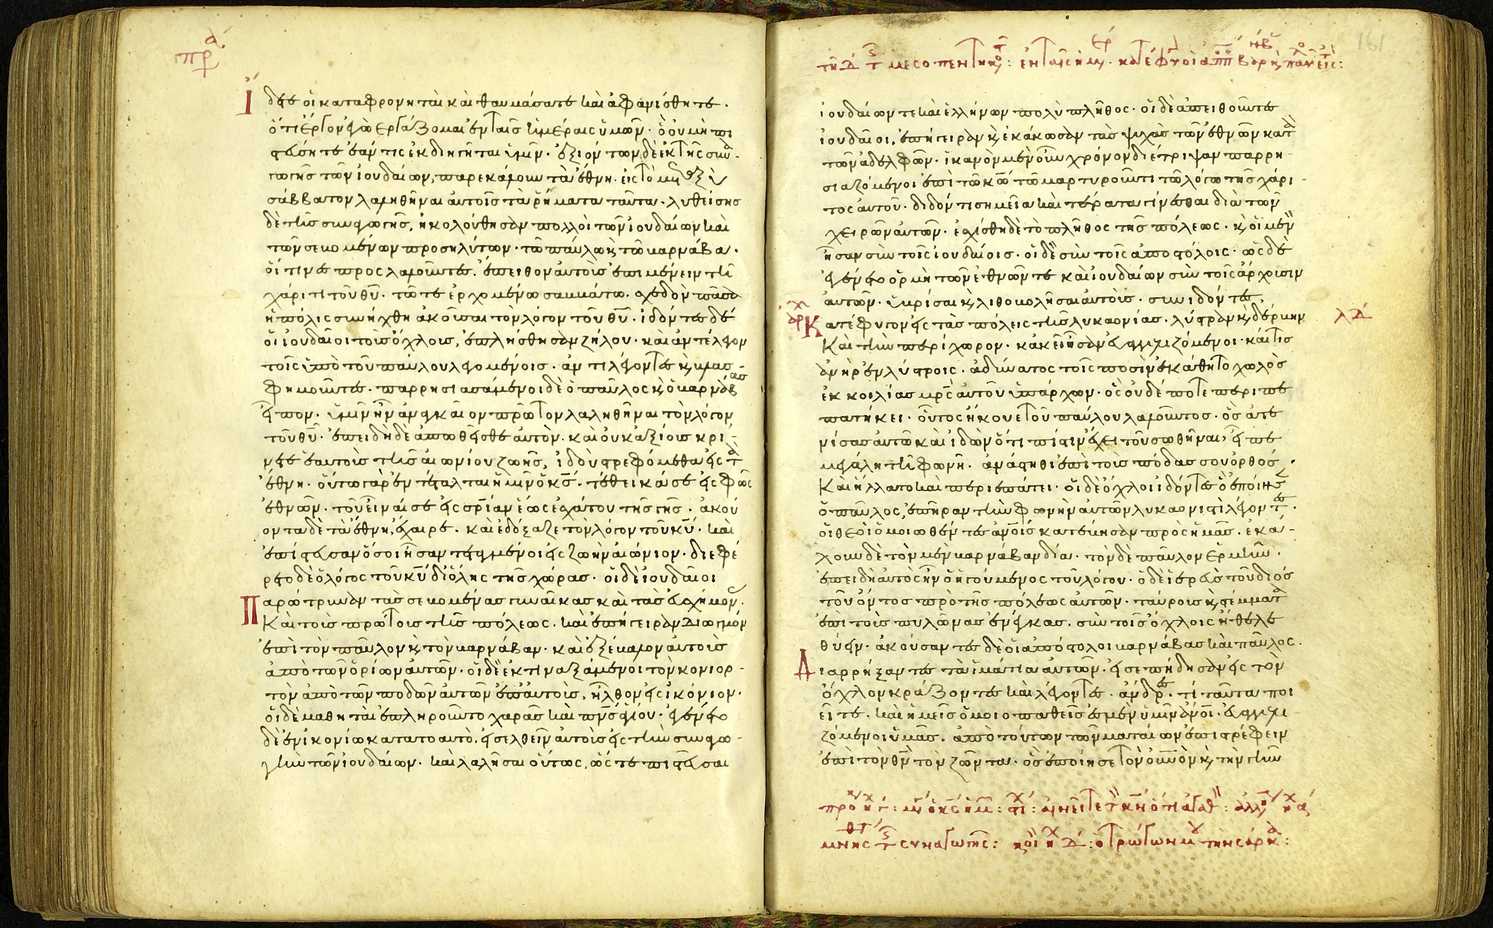 πρ
ἴδετε οἱ καταφρονηταὶ καὶ θαυμάσατε καὶ ἀφανίσθητε·
ὅτι ἔργον ἐγὼ ἐργάζομαι ἐν ταῖς ἡμέραις ὑμῶν· ὃ οὐ μὴ πι
στεύσητε ἐάν τις ἐκδιηγῆται ὑμῖν· ἐξιόντων δὲ ἐκ τῆς συνα
γωγῆς τῶν ἰουδαίων, παρεκάλουν τὰ ἔθνη· εἰς τὸ μεταξὺ
σάββατον λαληθῆναι αὐτοῖς τὰ ῥήματα ταῦτα· λυθείσης
δὲ τῆς συναγωγῆς, ἠκολούθησαν πολλοὶ τῶν ἰουδαίων καὶ
τῶν σεβομένων προσηλύτων· τῶ παύλω κ τῶ βαρνάβα·
οἵ τινες προσλαλοῦντες, ἔπειθον αὐτοὺς ἐπιμένειν τῆ
χάριτι τοῦ θυ· τῶ τε ἐρχομένω σαββάτω, σχεδὸν πᾶσα
ἡ πόλις συνήχθη ἀκοῦσαι τὸν λόγον τοῦ θυ· ἰδόντες δὲ
οἱ ἰουδαῖοι τοὺς ὄχλους, ἐπλήσθησαν ζήλου· καὶ ἀντέλεγον
τοῖς ὑπὸ τοῦ παύλου λεγομένοις· ἀντιλέγοντες κ βλασ
φημοῦντες· παρρησιασάμενοι δὲ ὁ παῦλος κ ὁ βαρνάβας
εἶπον· ὑμῖν ἦν ἀναγκαῖον πρῶτον λαληθῆναι τὸν λόγον
τοῦ θυ· ἐπειδὴ δὲ ἀπωθεῖσθε αὐτὸν· καὶ οὐκ ἀξίους κρί
νετε ἑαυτοὺς τῆς αἰωνίου ζωῆς, ἰδοὺ στρεφόμεθα εἰς τὰ
ἔθνη· οὕτω γὰρ ἐντέταλται ἡμῖν ὁ κς· τέθεικά σε εἰς φῶς
ἐθνῶν· τοῦ εἶναί σε εἰς σριαν ἕως ἐσχάτου τῆς γῆς· ἀκού
οντα δὲ τὰ ἔθνη, ἔχαιρε· καὶ ἐδόξαζε τὸν λόγον τοῦ κυ· καὶ
ἐπίστευσαν ὅσοι ἦσαν τεταγμένοι εἰς ζωὴν αἰώνιον· διεφέ
ρετο δὲ ὁ λόγος τοῦ κυ δι' ὅλης τῆς χώρας· οἱ δὲ ἰουδαῖοι
Παρώτρυναν τὰς σεβομένας γυναῖκας καὶ τὰς εὐσχήμον·
Καὶ τοὺς πρώτους τῆς πόλεως· καὶ ἐπήγειραν διωγμὸν
ἐπὶ τὸν παῦλον κ τὸν βαρνάβαν· καὶ ἐξέβαλον αὐτοὺς
ἀπὸ τῶν ὁρίων αὐτῶν· οἱ δὲ ἐκτιναξάμενοι τὸν κονιορ
τὸν ἀπὸ τῶν ποδῶν αὐτῶν ἐπ' αὐτοὺς, ἦλθον εἰς ἰκόνιον·
οἱ δὲ μαθηταὶ ἐπληροῦντο χαρᾶς καὶ πνς ἁγίου· ἐγένετο
δὲ ἐν ἰκονίω κατὰ τὸ αὐτὸ, εἰσελθεῖν αὐτοὺς εἰς τὴν συναγω
γὴν τῶν ἰουδαίων· καὶ λαλῆσαι οὕτως, ὥστε πιστεῦσαι
161
ἰουδαίων τε καὶ ἑλλήνων πολὺ πλῆθος· οἱ δὲ ἀπειθοῦντες
ἰουδαῖοι, ἐπήγειραν κ ἐκάκωσαν τὰς ψυχὰς τῶν ἐθνῶν κατὰ
τῶν ἀδελφῶν· ἱκανὸν μὲν οὖν χρόνον διέτριψαν παρρη
σιαζόμενοι ἐπὶ τῶ κω τῶ μαρτυροῦντι τῶ λόγω τῆς χάρι
τος αὐτοῦ· διδόντι σημεῖα καὶ τέρατα γίνεσθαι διὰ τῶν
χειρῶν αὐτῶν· ἐσχίσθη δὲ τὸ πλῆθος τῆς πόλεως· κ οἱ μὲν
ἦσαν σὺν τοῖς ἰουδαίοις· οἱ δὲ σὺν τοῖς ἀποστόλοις· ὡς δὲ
ἐγένετο ὁρμὴ τῶν ἐθνῶν τε καὶ ἰουδαίων σὺν τοῖς ἄρχουσιν
αὐτῶν· ὑβρίσαι κ λιθοβολῆσαι αὐτούς· συνιδόντες
Κατέφυγον εἰς τὰς πόλεις τῆς λυκαονίας· λύστραν κ δέρβην λδ
Καὶ τὴν περίχωρον· κἀκεῖ ἦσαν εὐαγγελιζόμενοι· καί τις
ἀνὴρ ἐν λύστροις· ἀδύνατος τοῖς ποσὶν ἐκάθητο χωλὸς
ἐκ κοιλίας μρς αὐτοῦ ὑπάρχων· ὃς οὐδέποτε περιπε
πατήκει· οὗτος ἤκουε τοῦ παύλου λαλοῦντος· ὃς ἀτε
νίσας αὐτῶ καὶ ἰδὼν ὅτι πίστιν ἔχει τοῦ σωθῆναι, εἶπε
μεγάλη τῆ φωνῆ· ἀνάστηθι ἐπὶ τοὺς πόδας σου ὀρθός·
Καὶ ἥλλατο καὶ περιεπάτει· οἱ δὲ ὄχλοι ἰδόντες ὃ ἐποίησεν
ὁ παῦλος, ἐπῆραν τὴν φωνὴν αὐτῶν λυκαονιστὶ λέγοντες·
οἱ θεοὶ ὁμοιωθέντες ἀνοις κατέβησαν πρὸς ἡμᾶς· ἐκά
λουν δὲ τὸν μὲν βαρνάβαν δία· τὸν δὲ παῦλον ἑρμῆν·
ἐπειδὴ αὐτὸς ἦν ὁ ἡγούμενος τοῦ λόγου· ὁ δὲ ἱερεὺς τοῦ διὸς
τοῦ ὄντος πρὸ τῆς πόλεως αὐτῶν· ταύρους κ στέμματα
ἐπὶ τοὺς πυλῶνας ἐνέγκας· σὺν τοῖς ὄχλοις ἤθελε
θύειν· ἀκούσαντες δὲ οἱ ἀπόστολοι βαρνάβας καὶ παῦλος·
Διαρρήξαντες τὰ ἱμάτια αὐτῶν· εἰσεπήδησαν εἰς τὸν
ὄχλον κράζοντες καὶ λέγοντες· ἄνδρες· τί ταῦτα ποι
εῖτε· καὶ ἡμεῖς ὁμοιοπαθεῖς ἐσμὲν ὑμῖν ἄνοι· εὐαγγελι
ζόμενοι ὑμᾶς· ἀπὸ τούτων τῶν ματαίων ἐπιστρέφειν
ἐπὶ τὸν θν τὸν ζῶντα· ὃς ἐποίησε τὸν οὐνον κ τὴν γῆν